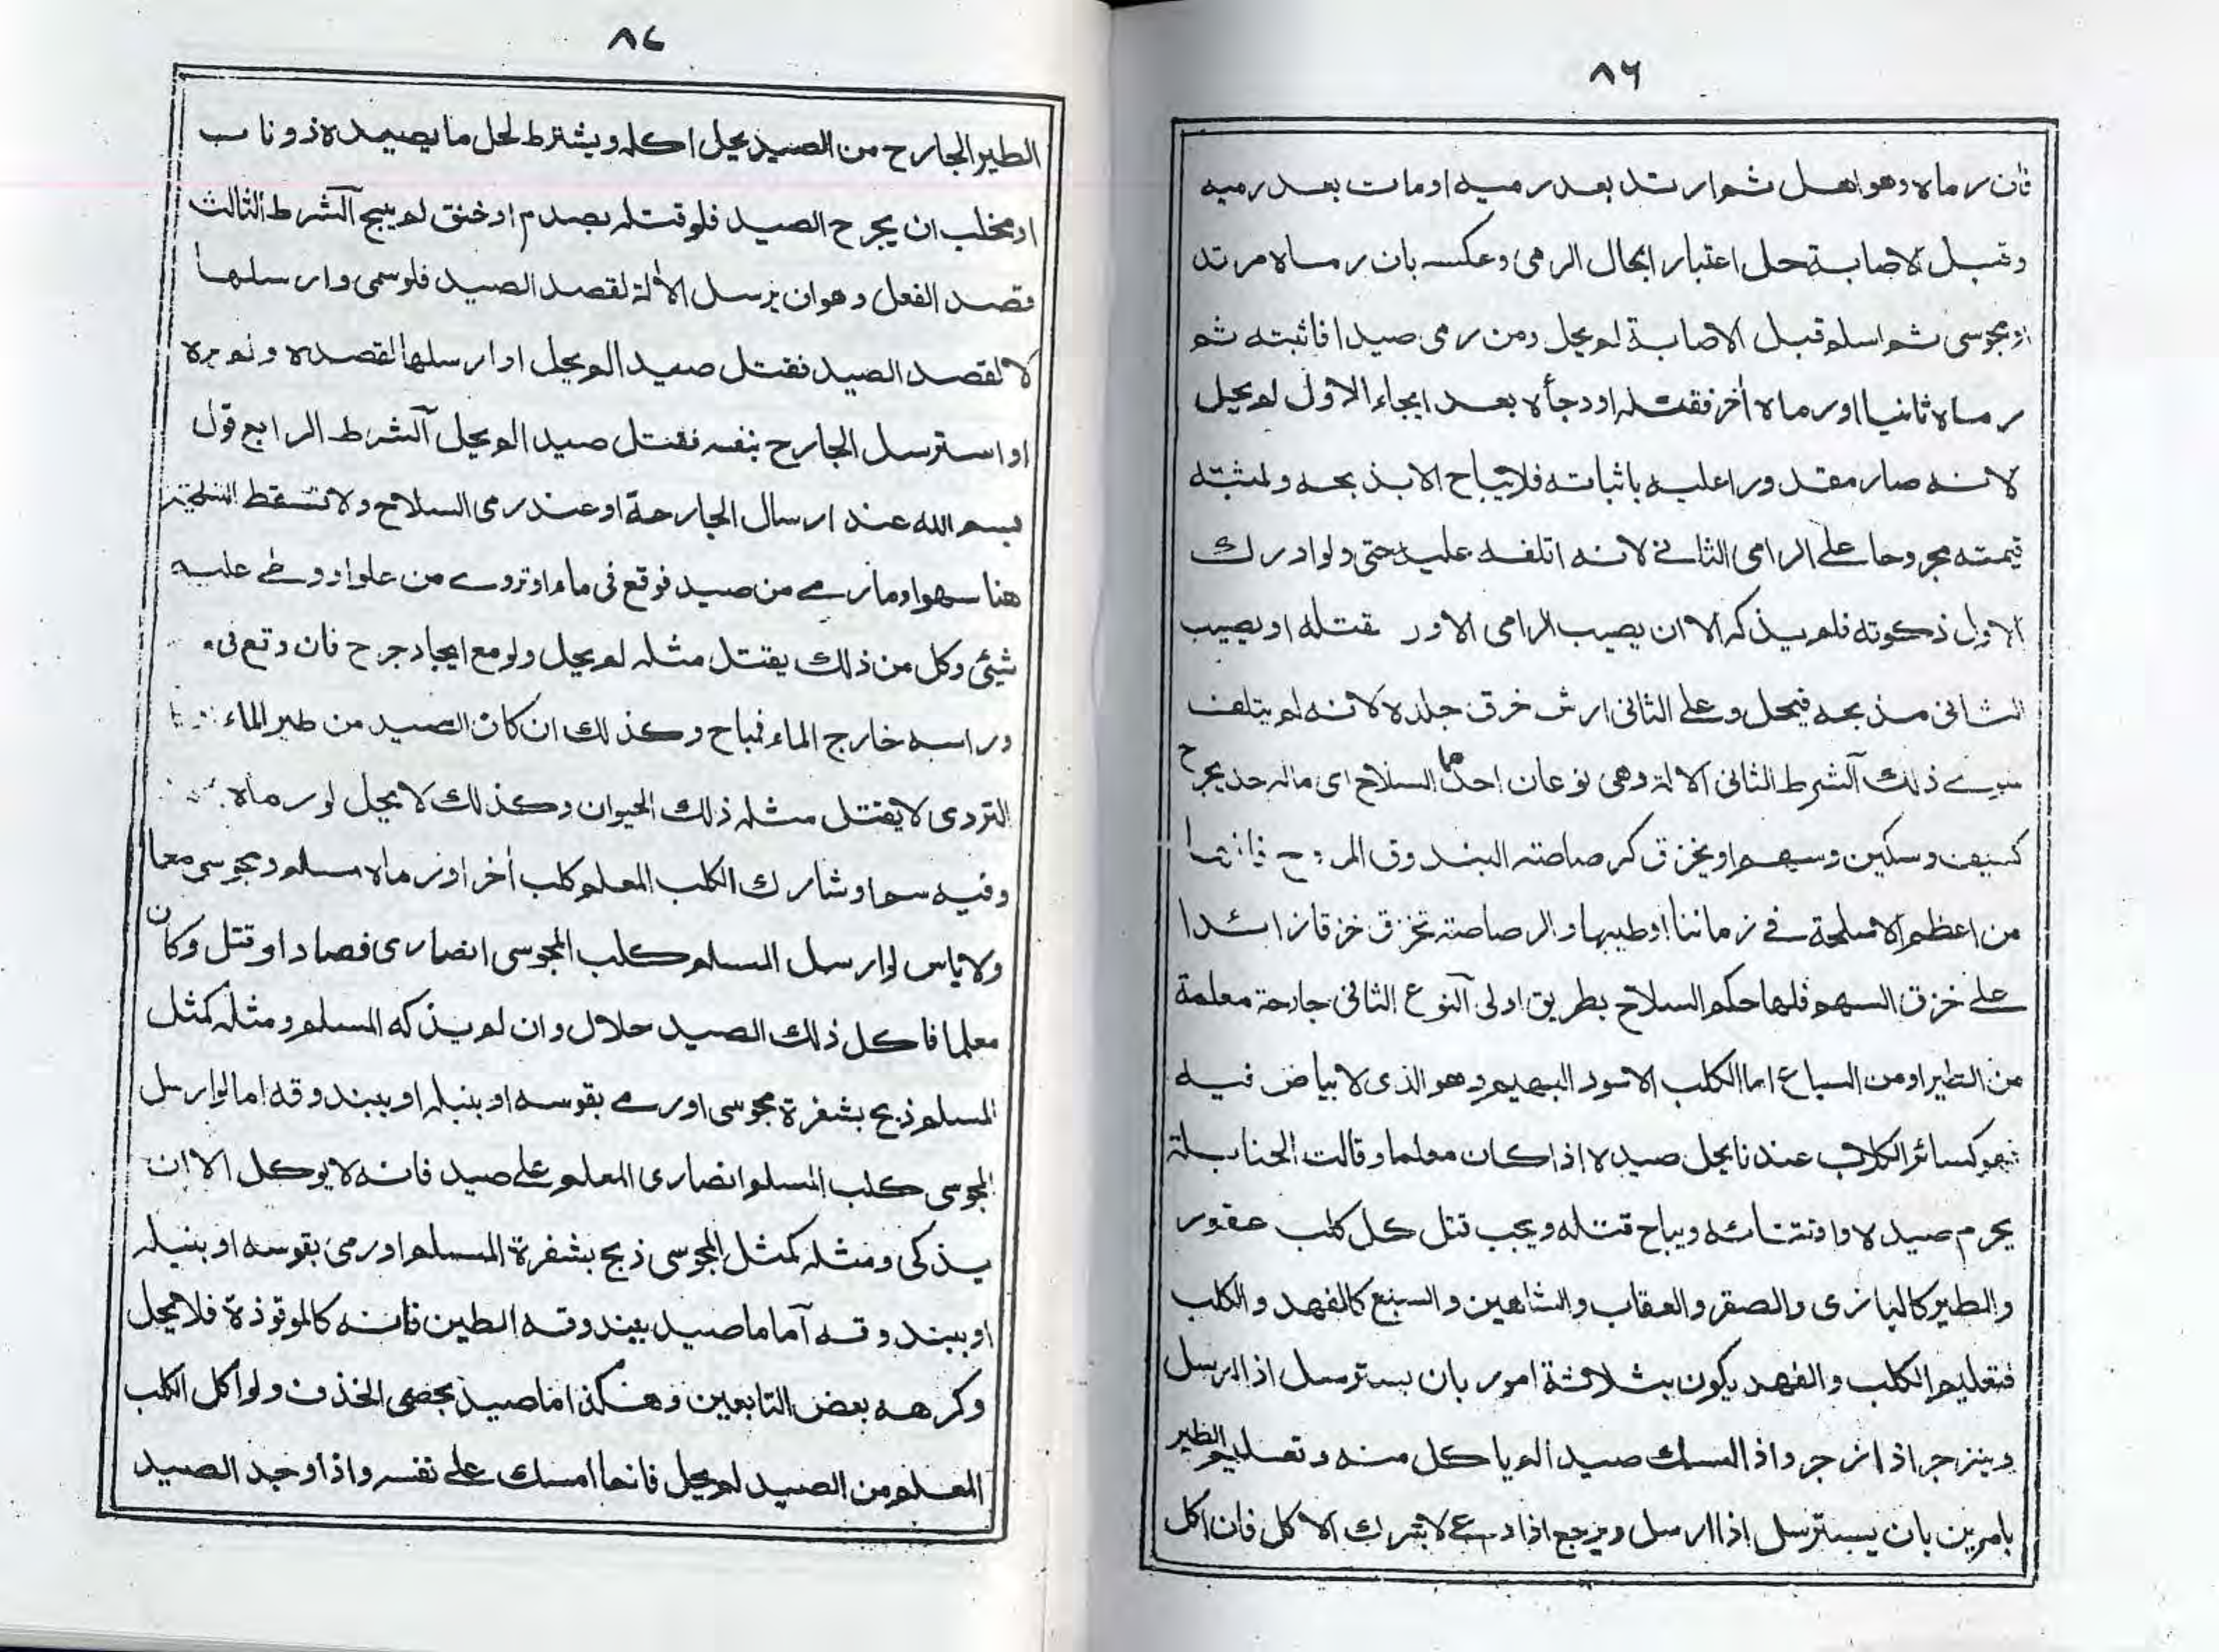 ٨٦
فان رماه وهو اهل ثم ارتد بعد رميه او مات بعد رميه
وقبل الاصابة حل اعتبار ابحال الرمى وعكسه بان رماه مرتد
او مجوسى ثم اسلم قبل الاصابة لم يحل ومن رمى صيدا فاثبته ثم
رماه ثانيا او رماه أخر فقتله او وجأه بعد ايجاء الاول لم يحل
لانه صار مقدورا عليه باثباته فلا يباح الا بذبحه ولمثبته
قيمته مجروحا على الرامى الثانى لانه اتلفه عليه حتى ولو ادرك
الاول ذكوته فلم يذكه الا ان يصيب الرامى الاول مقتله او يصيب
الثانى مذبحه فيحل وعلى الثانى ارش خرق جلده لانه لم يتلف
سوى ذلك آلشرط الثانى الالة وهى نوعان احدهما السلاح اى ماله حد يجرح
كسيف وسكين وسهم او يخزق كرصاصة البندوق المروح فانها
من اعظم الاسلحة فى زماننا اوطيبها والرصاصة تخزق خزقا زائدا
على خزق السهم فلها حكم السلاح بطريق اولى آلنوع الثانى جارحة معلمة
من الطير او من السباع اما الكلب الاسود البهيم وهو الذى لا بياض فيه
فهو كسائر الكلاب عندنا يحل صيده اذا كان معلما وقالت الحنابلة
يحرم صيده واقتنائه ويباح قتله ويجب قتل كل كلب عقور
والطير كالبازى والصقر والعقاب والشاهين والسبع كالفهد والكلب
فتعليم الكلب والفهد يكون بثلاثة امور بان يسترسل اذا ارسل
وينزجر اذا زجر واذا امسك صيدا لم ياكل منه وتعليم الطير
بامرين بان يسترسل اذا ارسل ويرجع اذا دعى لا بترك الاكل فان اكل
٨٧
الطير الجارح من الصيد يحل اكله ويشترط لحل ما يصيده ذو ناب
او مخلب ان يجرح الصيد فلو قتله بصدم او خنق لم يبح آلشرط الثالث
قصد الفعل وهو ان يرسل الألة لقصد الصيد فلو سمى وارسلها
لا لقصد الصيد فقتل صيدا لم يحل او ارسلها لقصده ولم يره
او استرسل الجارح بنفسه فقتل صيدا لم يحل آلشرط الرابع قول
بسم الله عند ارسال الجارحة او عند رمى السلاح ولا تسقط التسمية
هنا سهوا وما رمى من صيد فوقع فى ماء او تردى من علو او وطئ عليه
شيئ وكل من ذلك يقتل مثله لم يحل ولو مع ايجاد جرح فان وقع فى
وراسه خارج الماء فمباح وكذلك ان كان الصيد من طير الماء
التردى لا يقتل مثله ذلك الحيوان وكذلك لا يحل لو رماه
وفيه سم او شارك الكلب المعلم كلب أخر او رماه مسلم ومجوسى معا
ولا باس لو ارسل المسلم كلب المجوسى انضارى فصاد او قتل وكان
معلما فاكل ذلك الصيد حلال وان لم يذكه المسلم ومثله كمثل
المسلم ذبح بشفرة مجوسى او رمى بقوسه او بنبله او ببندوقه اما لو ارسل
المجوسى كلب المسلم انضارى المعلم على صيد فانه لا يوكل الا ان
يذكى ومثله كمثل المجوسى ذبح بشفرة المسلم او رمى بقوسه او بنبله
او ببندوقه آما ما صيد ببندوقه الطين فانه كالموقوذة فلا يحل
وكرهه بعض التابعين وهكذا ما صيد بحصى الخذف ولو اكل الكلب
المعلم من الصيد لم يحل فانما امسك على نفسه واذا وجد الصيد